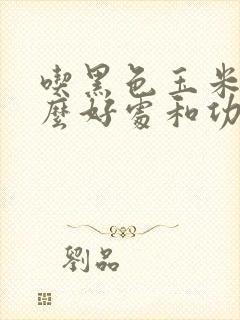 喫黑色玉米
麼好處和功
劉品